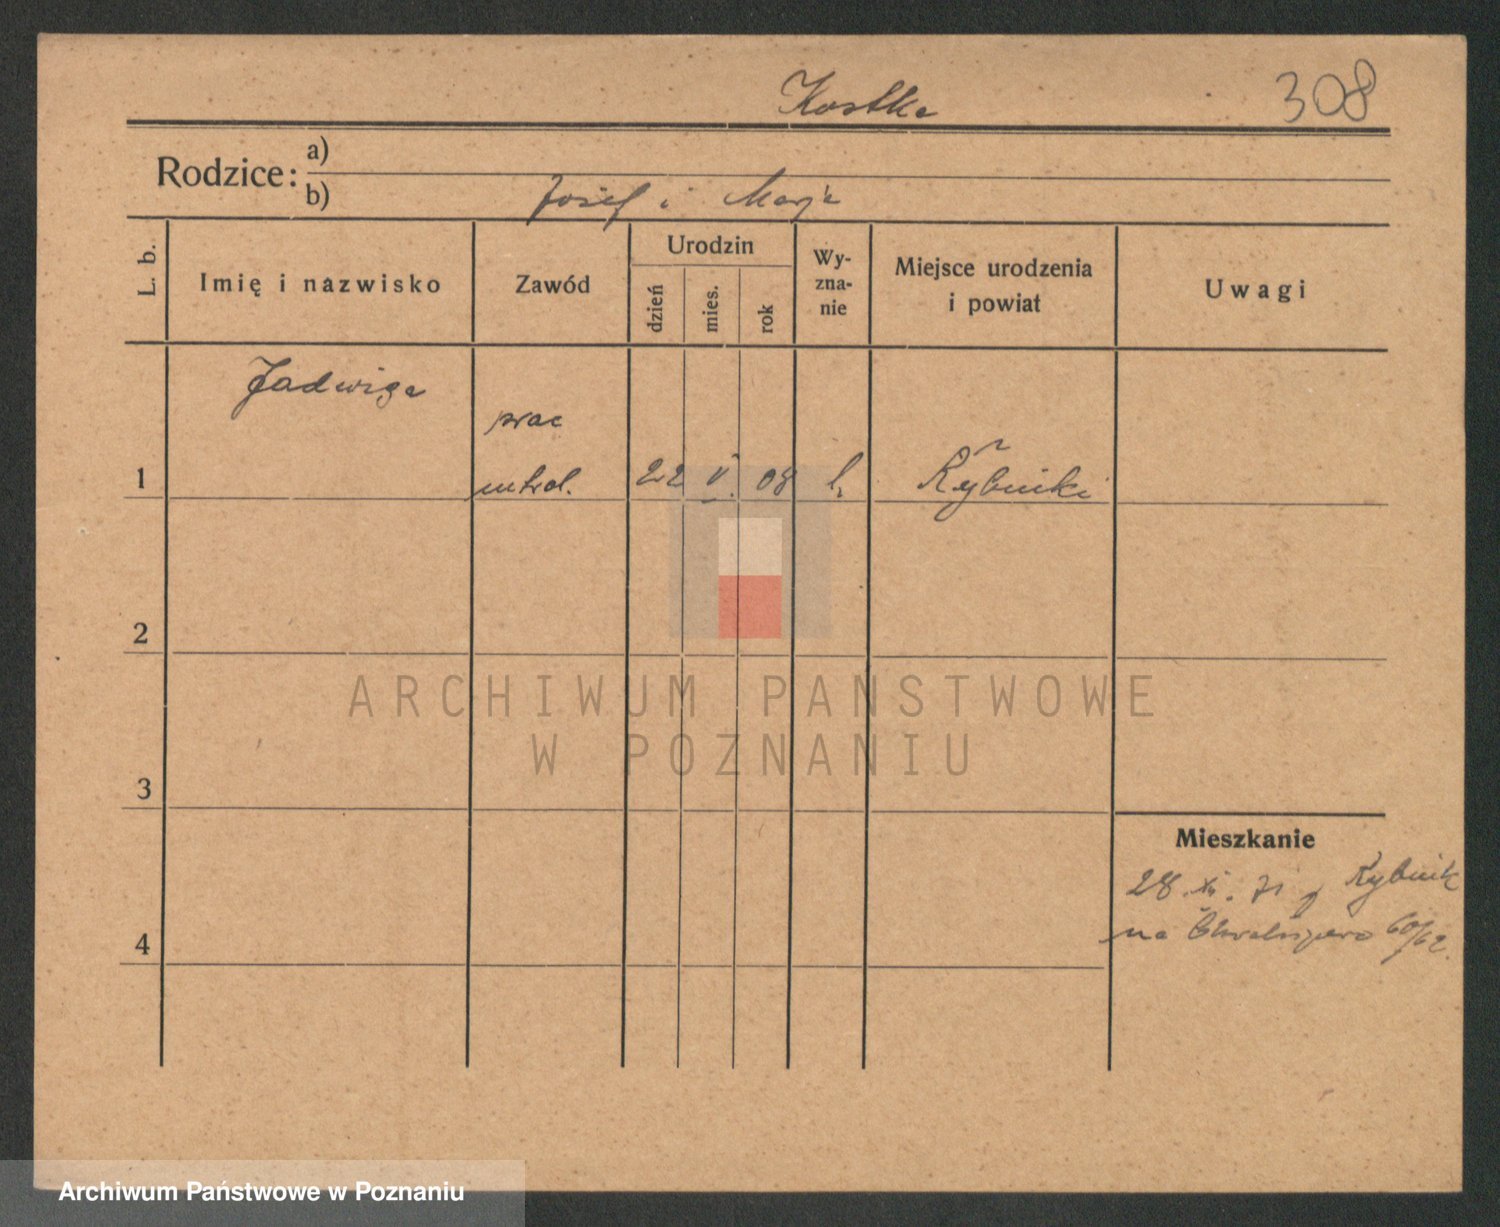 Kostka
308
Rodzice:
a)
b) Józef i Marja
L. b.
Imię i nazwisko
Zawód
Urodzin
dzień
mies.
rok
Wy-
zna-
nie
Miejsce urodzenia
i powiat
Uwagi
Jadwiga
prac
1
22 V. 08
2
3
4
Mieszkanie
28. XI. Rybnik
na 60/62.
ARCHIWUM PAŃSTWOWE
W POZNANIU
Archiwum Państwowe w Poznaniu